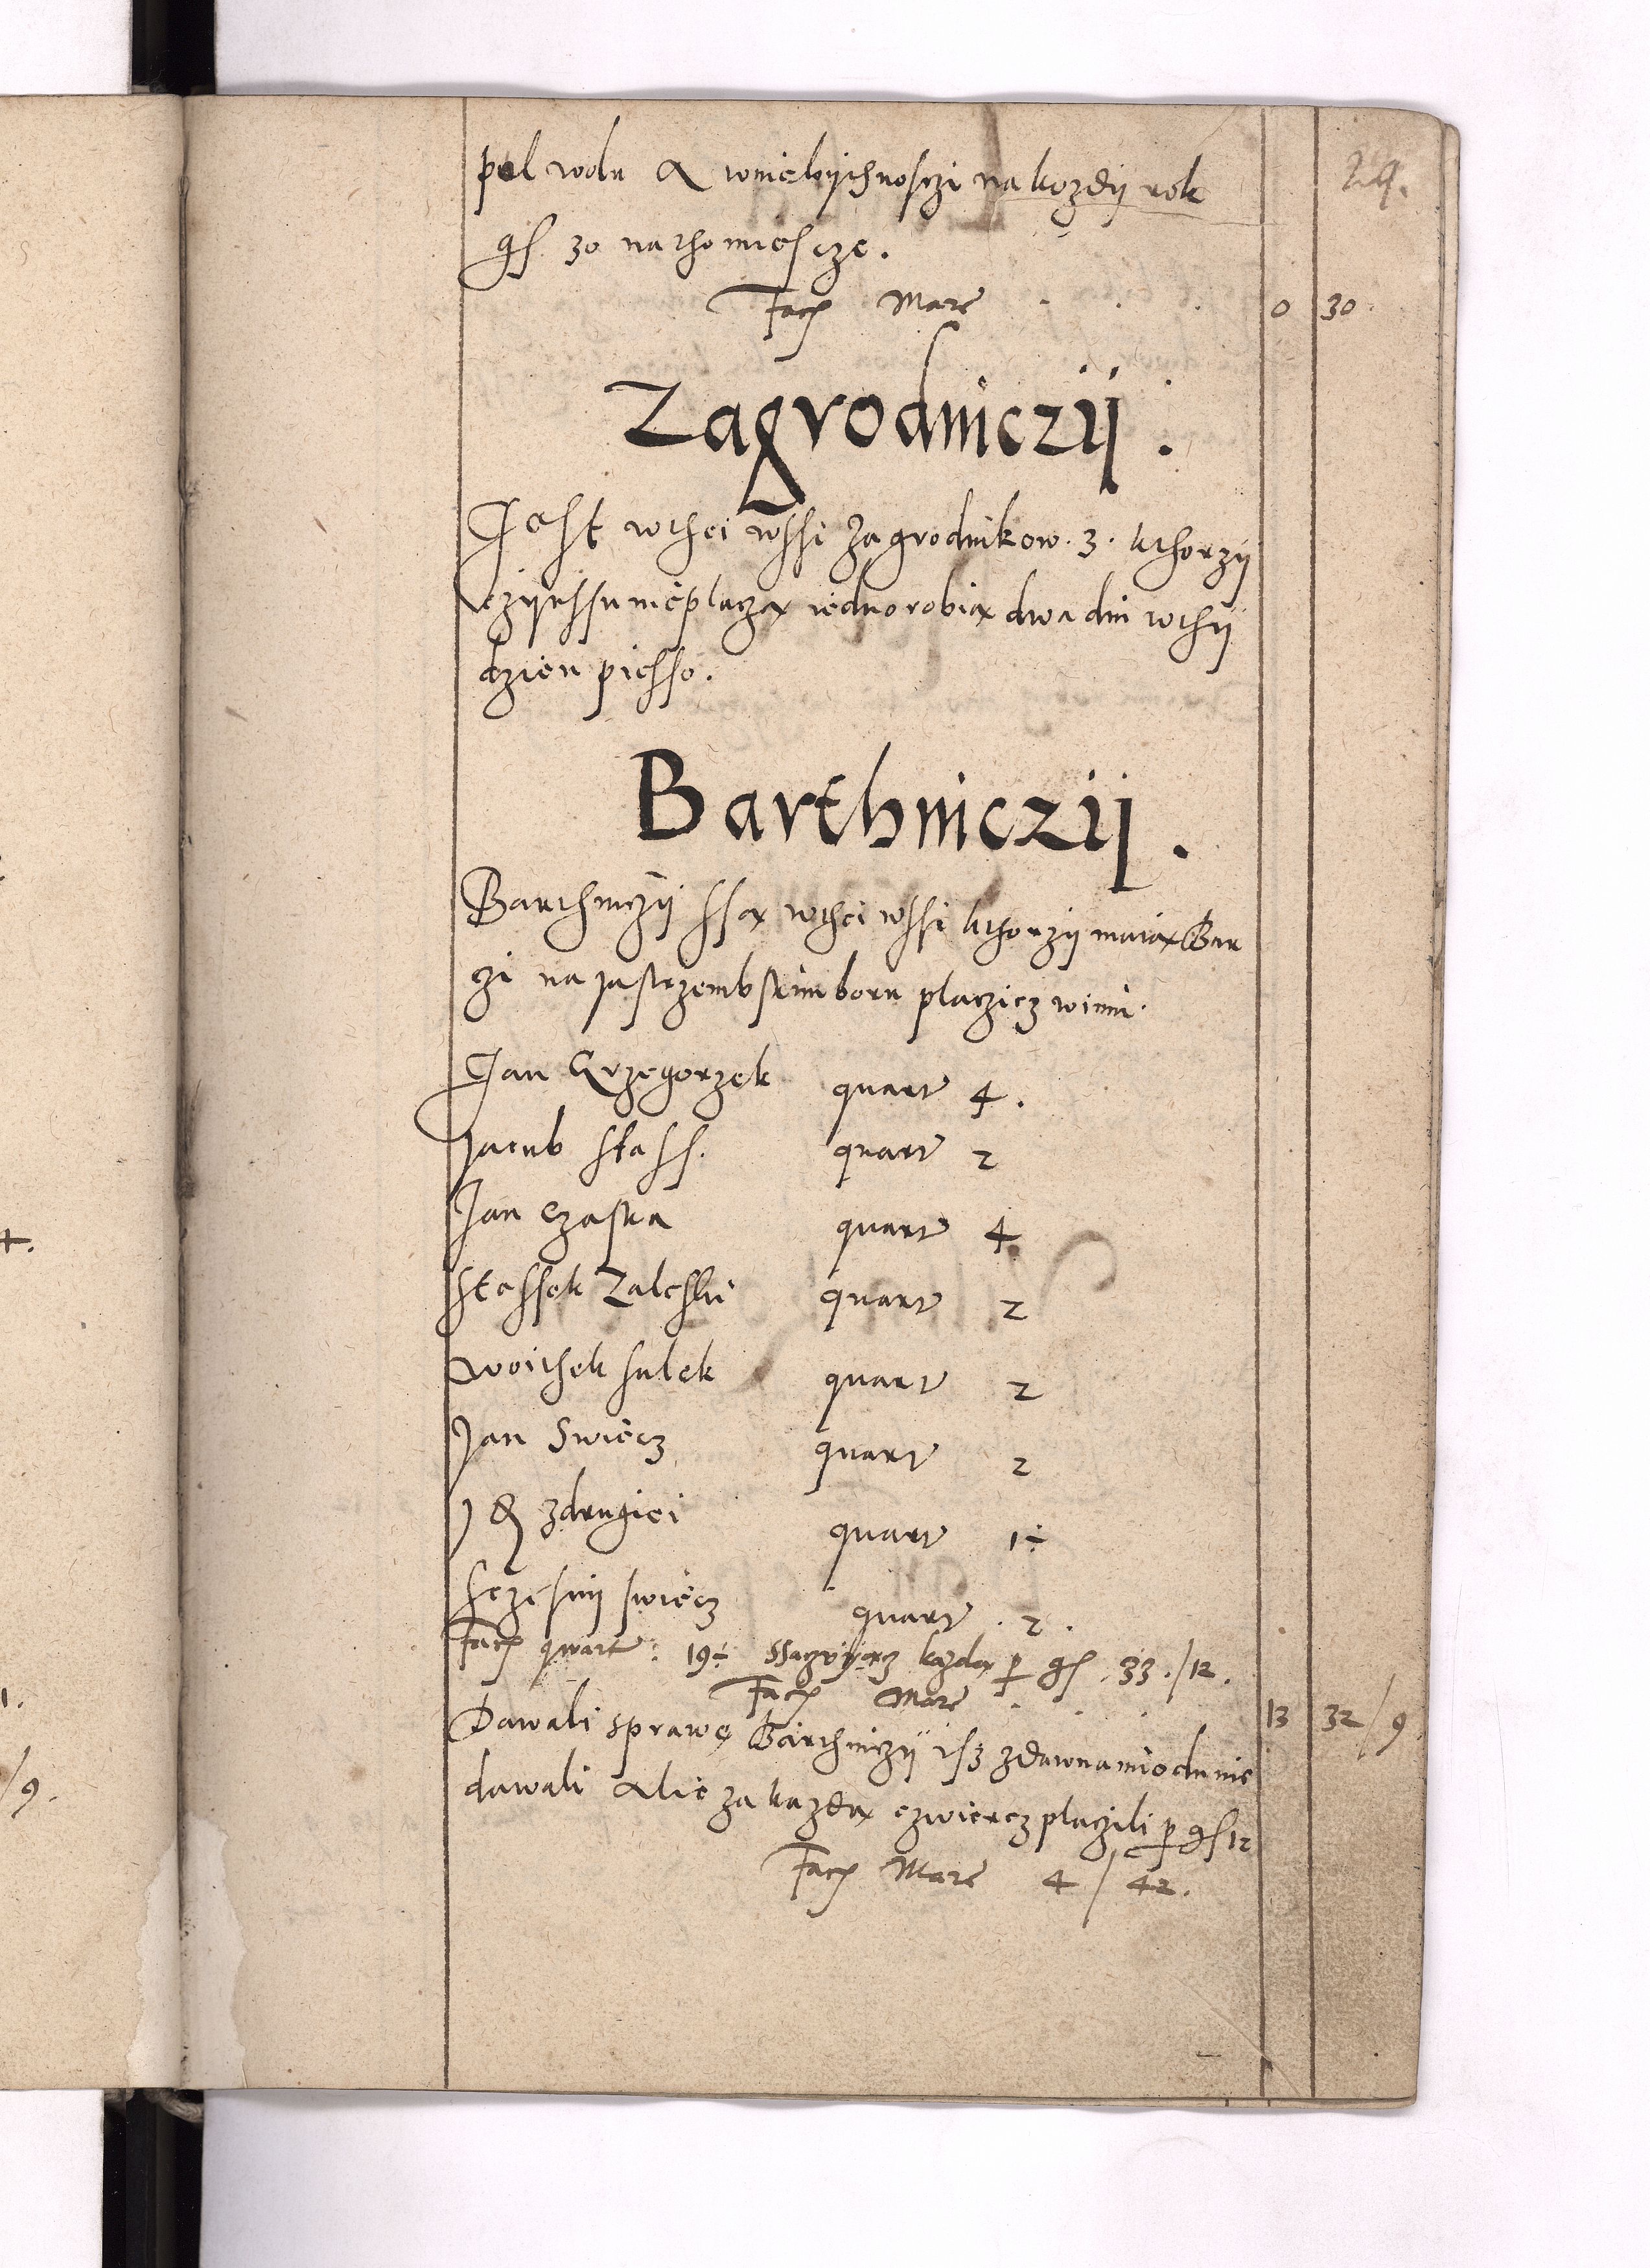 24.
pol wolu A wniebythnosczi na kozdij rok
gs. 30 na tho miescze.
Fac Marc . . . 0 30.
Zagrodniczij.
Jest wthei wssi Zagrodnikow. 3. kthorzij
czijnssu nieplacza iedno robia dwa dni w thij
dzien piesso.
Barthniczij.
Barthniczij ssa wthei wssi kthorzij maia Bar
czi na Jastrzembskim boru placzicz winni.
Jan Grzegorzek quart 4.
Jacub stass. quart 2
Jan Czaska quart 4
Stassek Zaleski quart 2
Woithek sulek quart 2
Jan Swiecz quart 2
zdrugiei quart 1÷
Sczesnij swiecz quart . 2.
Fac quart: 19÷ kazda p gs. 33./12.
Fac Marc . . . 13 32/9
Dawali sprawe Barthniczij isz zdawna miodu nie
dawali Alie za kazda czwiercz placzili p gs 12
Fac Marc 4/42.
/9.